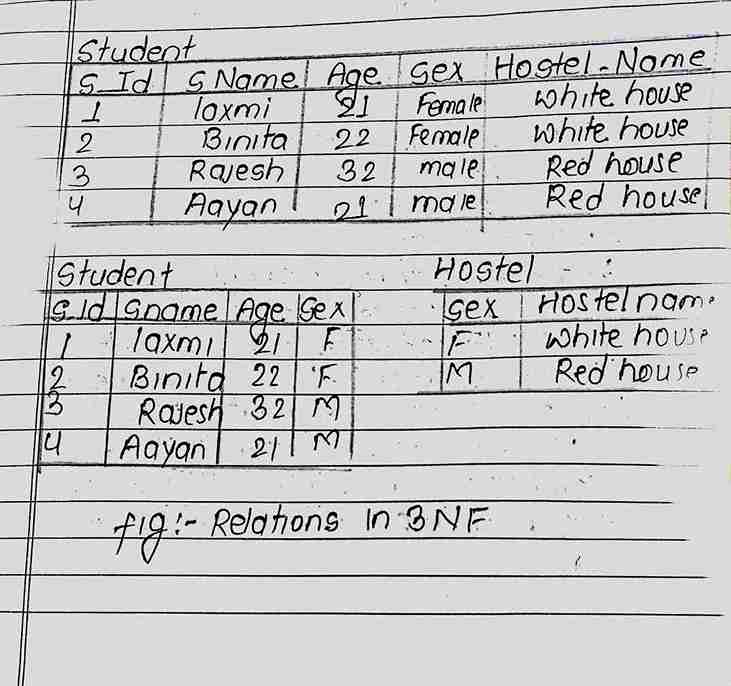 Student
S_Id S Name Age Sex Hostel-Name
1 laxmi 21 Female White house
2 Binita 22 Female White house
3 Rajesh 32 male Red house
4 Aayan 21 male Red house
Student Hostel
S_Id Sname Age Sex Sex Hostelname
1 laxmi 21 F F White house
2 Binita 22 F M Red house
3 Rajesh 32 M
4 Aayan 21 M
fig:- Relations in 3NF